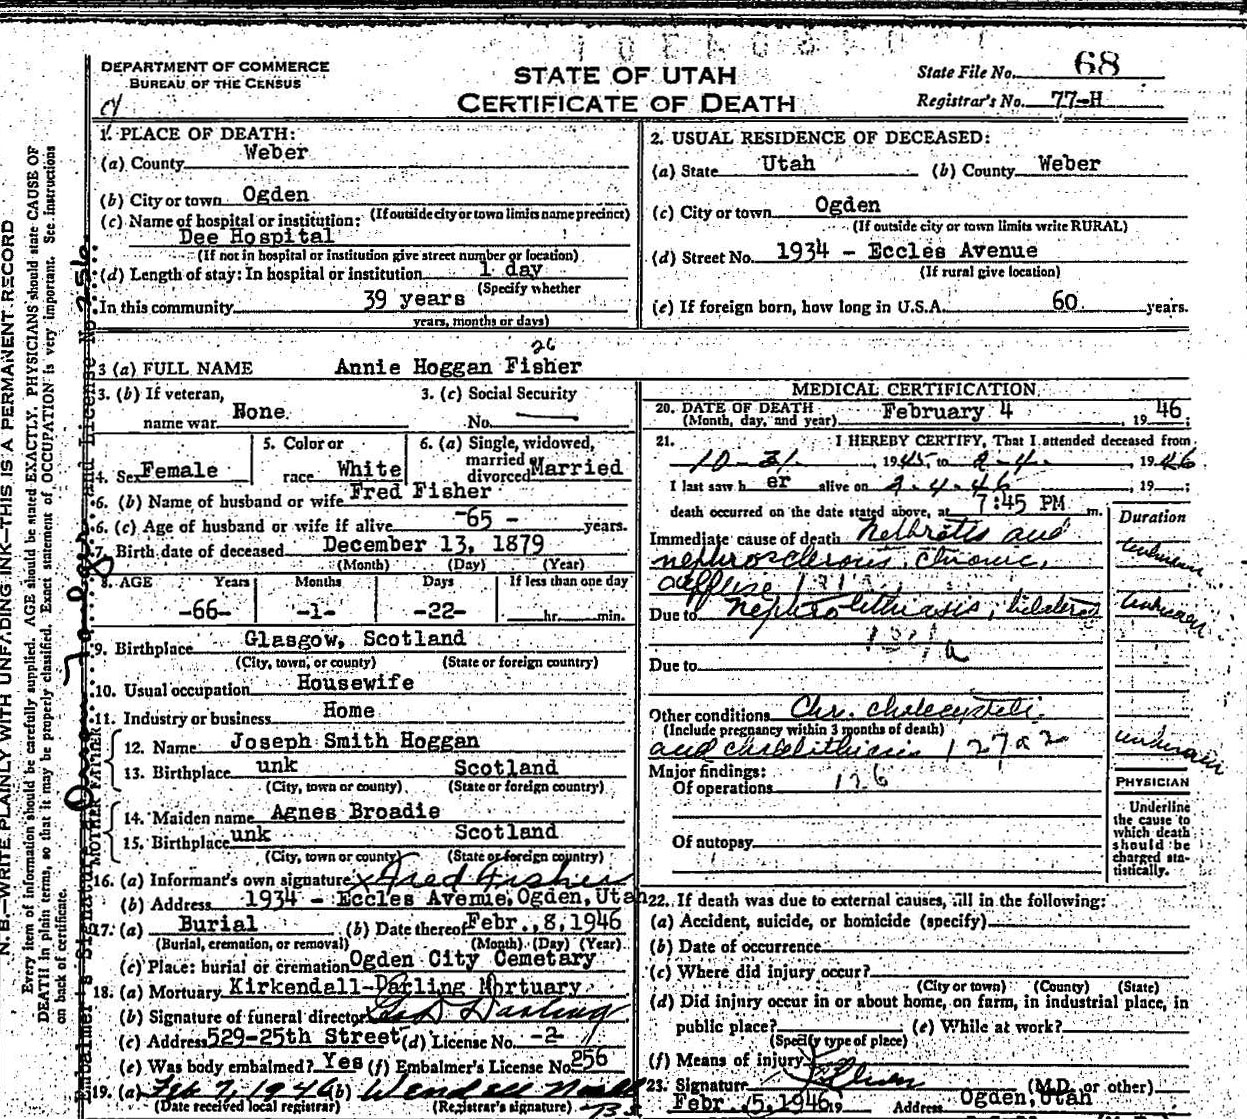 DEPARTMENT OF COMMERCE
BUREAU OF THE CENSUS
STATE OF UTAH
CERTIFICATE OF DEATH
State File No. 68
Registrar's No. 77-H
N. B.—WRITE PLAINLY WITH UNFADING INK—THIS IS A PERMANENT RECORD
Every item of information should be carefully supplied. AGE should be stated EXACTLY. PHYSICIANS should state CAUSE OF
DEATH in plain terms, so that it may be properly classified. Exact statement of OCCUPATION is very important. See instructions
on back of certificate.
Embalmer's Signature and License No. 256
1. PLACE OF DEATH:
(a) County Weber
(b) City or town Ogden
(If outside city or town limits name precinct)
(c) Name of hospital or institution:
Dee Hospital
(If not in hospital or institution give street number or location)
(d) Length of stay: In hospital or institution 1 day
(Specify whether
In this community 39 years
years, months or days)
2. USUAL RESIDENCE OF DECEASED:
(a) State Utah (b) County Weber
(c) City or town Ogden
(If outside city or town limits write RURAL)
(d) Street No. 1934 - Eccles Avenue
(If rural give location)
(e) If foreign born, how long in U.S.A. 60 years.
26
3 (a) FULL NAME Annie Hoggan Fisher
3. (b) If veteran, name war None
3. (c) Social Security No.
4. Sex Female
5. Color or race White
6. (a) Single, widowed, married or divorced Married
6. (b) Name of husband or wife Fred Fisher
6. (c) Age of husband or wife if alive -65- years.
7. Birth date of deceased December 13, 1879
(Month) (Day) (Year)
8. AGE Years Months Days If less than one day
-66- -1- -22- hr. min.
9. Birthplace Glasgow, Scotland
(City, town, or county) (State or foreign country)
10. Usual occupation Housewife
11. Industry or business Home
FATHER
12. Name Joseph Smith Hoggan
13. Birthplace unk Scotland
(City, town or county) (State or foreign country)
MOTHER
14. Maiden name Agnes Broadie
15. Birthplace unk Scotland
(City, town or county) (State or foreign country)
16. (a) Informant's own signature x Fred Fisher
(b) Address 1934 - Eccles Avenue, Ogden, Utah
17. (a) Burial (b) Date thereof Febr., 8, 1946
(Burial, cremation, or removal) (Month) (Day) (Year)
(c) Place: burial or cremation Ogden City Cemetary
18. (a) Mortuary Kirkendall-Darling Mortuary
(b) Signature of funeral director Darling
(c) Address 529-25th Street (d) License No. -2-
(e) Was body embalmed? Yes (f) Embalmer's License No. 256
19. (a) Feb 7, 1946 (b) Wendell
(Date received local registrar) (Registrar's signature)
MEDICAL CERTIFICATION
20. DATE OF DEATH February 4, 1946;
(Month, day, and year)
21. I HEREBY CERTIFY, That I attended deceased from
10-31-, 1945, to 2-4-, 1946
I last saw her alive on 2-4-46, 19 ;
death occurred on the date stated above, at 7:45 PM m.
Duration
Immediate cause of death Nephritis and
nephrosclerosis, chronic, unknown
diffuse
Due to Nephrolithiasis, bilateral unknown
Due to
Other conditions Chr. cholecystitis
(Include pregnancy within 3 months of death)
and cholelithiasis 127a2 unknown
Major findings:
Of operations 126
Of autopsy
PHYSICIAN
Underline
the cause to
which death
should be
charged sta-
tistically.
22. If death was due to external causes, fill in the following:
(a) Accident, suicide, or homicide (specify)
(b) Date of occurrence
(c) Where did injury occur?
(City or town) (County) (State)
(d) Did injury occur in or about home, on farm, in industrial place, in
public place? (e) While at work?
(Specify type of place)
(f) Means of injury
23. Signature (M.D. or other)
Febr. 5, 1946 19 Address Ogden, Utah